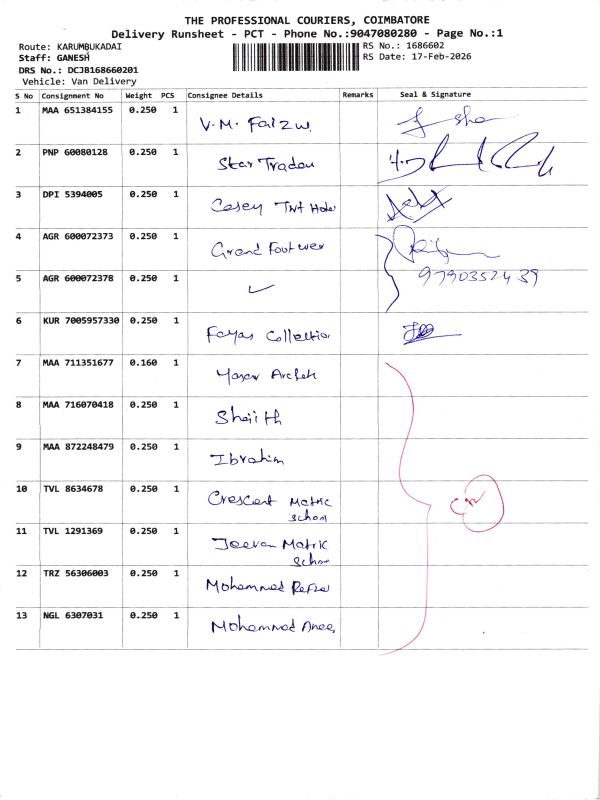 THE PROFESSIONAL COURIERS, COIMBATORE
Delivery Runsheet - PCT - Phone No.:9047080280 - Page No.:1
Route: KARUMBUKADAI
RS No.: 1686602
Staff: GANESH
RS Date: 17-Feb-2026
DRS No.: DCJB168660201
Vehicle: Van Delivery
S No Consignment No Weight PCS Consignee Details Remarks Seal & Signature
1 MAA 651384155 0.250 1 V.M. Faizu
2 PNP 60080128 0.250 1 Star Trader
3 DPI 5394005 0.250 1 Casey
4 AGR 600072373 0.250 1 Grand Footwer
5 AGR 600072378 0.250 1 9790352439
6 KUR 7005957330 0.250 1 Fayas Collection
7 MAA 711351677 0.160 1
8 MAA 716070418 0.250 1
9 MAA 872248479 0.250 1 Ibrahim
10 TVL 8634678 0.250 1 Crescent Matric
School
11 TVL 1291369 0.250 1 Jeevan Matric
School
12 TRZ 56306003 0.250 1 Mohammed
13 NGL 6307031 0.250 1 Mohammed Anees